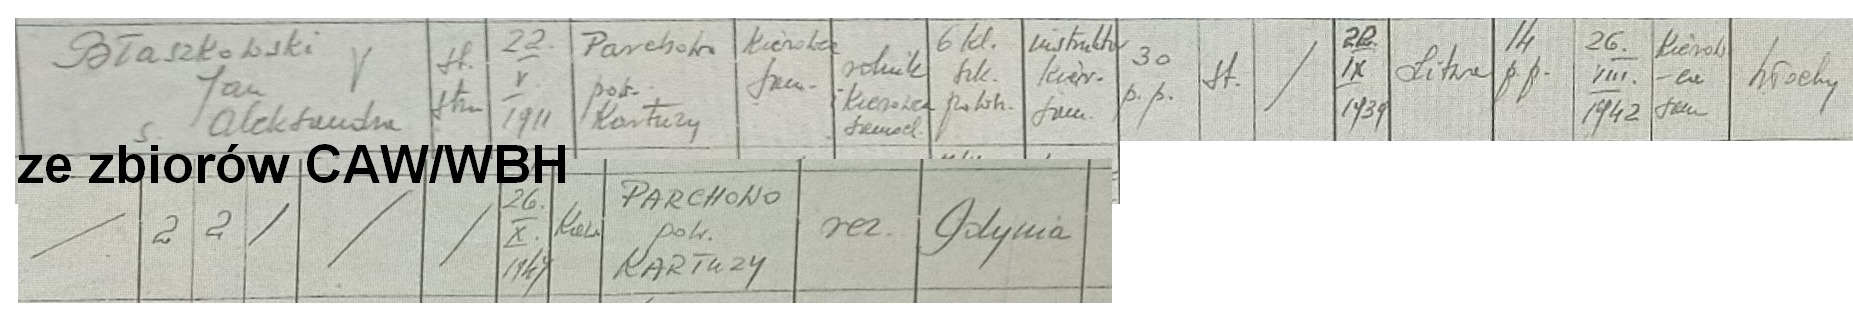 Błaszkowski V
Jan
s. Aleksandra
st.
strz
22.
V
1911
Parchowo
pow.
Kartuzy
Kierowca
sam.
rolnik
i kierowca
samoch.
6 kl.
szk.
powsz.
instruktor
kier.
sam.
30
p.p.
st.
/
22.
IX
1939
Litwa
14
p.p.
26.
VIII.
1942
Kierow
-ca
sam
Włochy
ze zbiorów CAW/WBH
/
2
2
/
/
/
26.
X.
1947
Kier.
PARCHOWO
pow.
KARTUZY
rez.
Gdynia